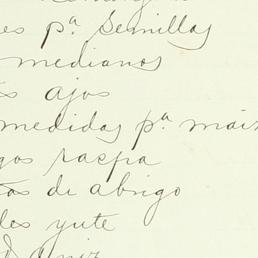 es pª Semillas
medianos
s ajos
medidas pª maiz
gos raspa
tos de abrigo
les yute